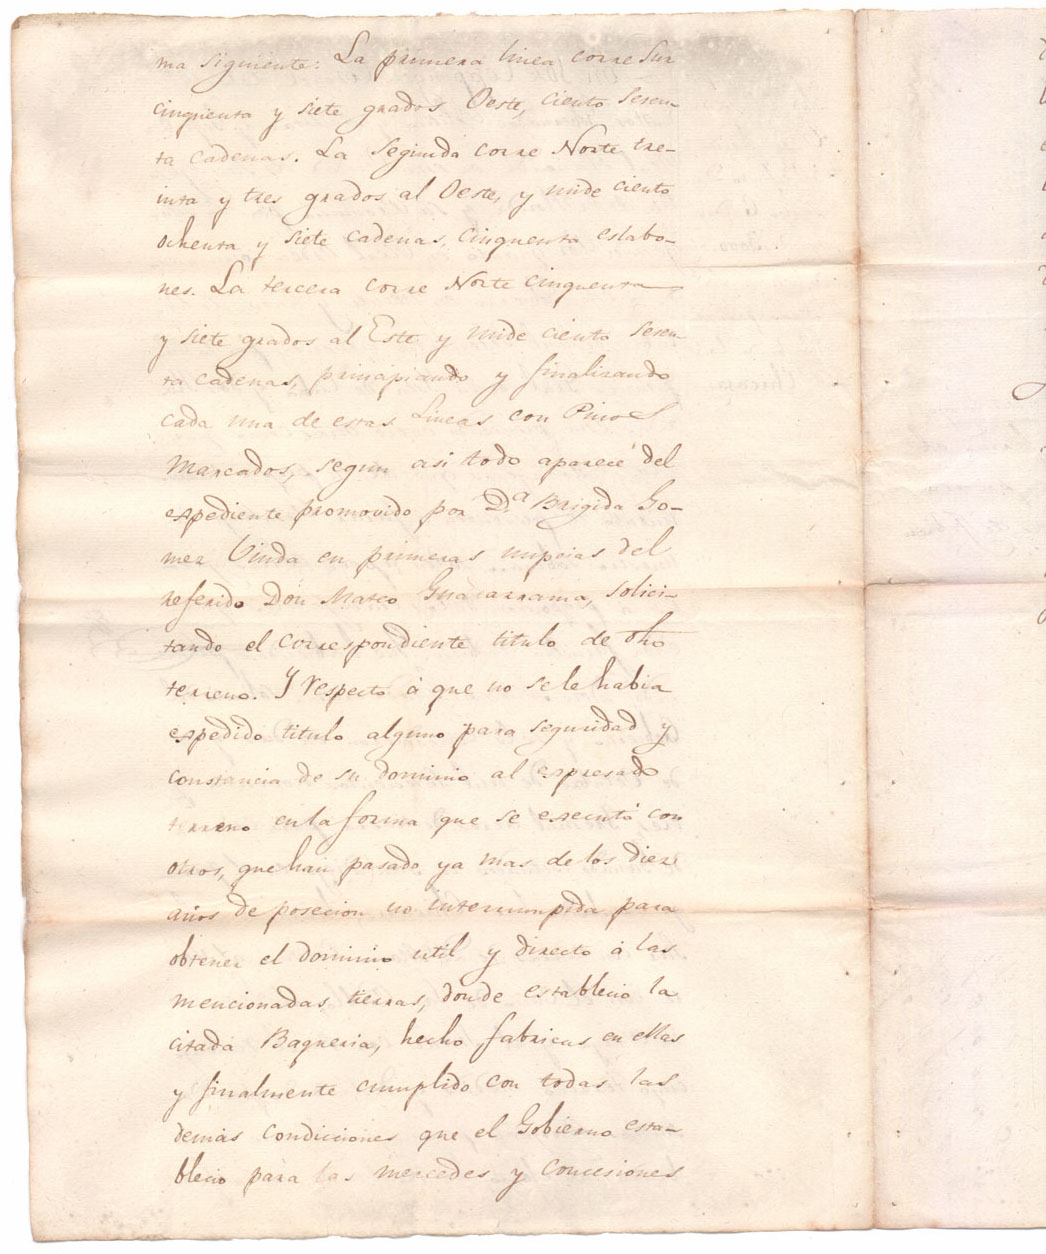 ma siguiente: La primera linea corre Sur
cinquenta y siete grados Oeste, ciento sesen-
ta cadenas. La segunda corre Norte tre-
inta y tres grados al Oeste, y mide ciento
ochenta y siete cadenas, cinquenta eslabo-
nes. La tercera corre Norte cinquenta
y siete grados al Este y mide ciento sesen-
ta cadenas, principiando y finalizando
cada una de estas Lineas con Pinos
Marcados, segun asi todo aparece del
espediente promovido por D.ª Brigida Go-
mez Viuda en primeras nupcias del
referido Don Mateo Guadarrama, solici-
tando el correspondiente titulo de dho
terreno. Y respecto á que no se le habia
espedido titulo alguno para seguridad y
constancia de su dominio al espresado
terreno en la forma que se executó con
otros, que han pasado ya mas de los diez
años de posecion no interrumpida para
obtener el dominio util y directo á las
mencionadas tierras, donde establecio la
citada Baqueria, hecho fabricas en ellas
y finalmente cumplido con todas las
demas condiciones que el Gobierno esta-
blecio para las mercedes y concesiones